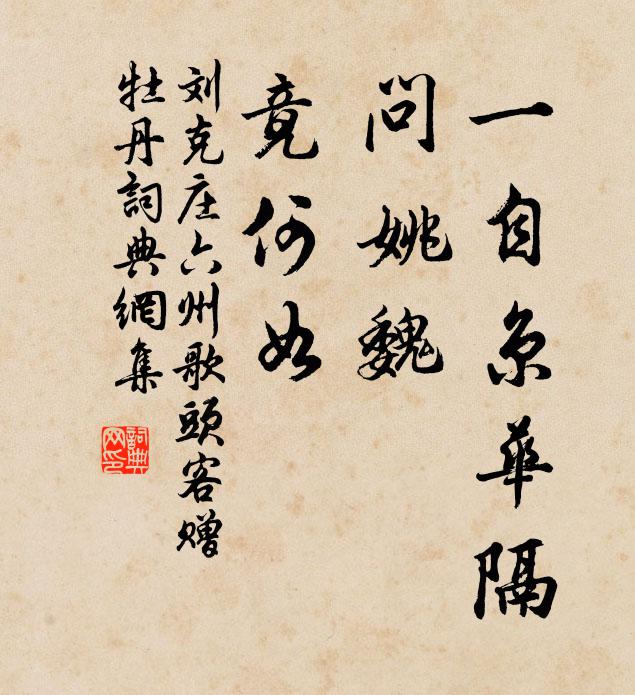 一自京華隔
問姚魏
竟何如
刘克庄六州歌頭客赠
牡丹詞典網集
詞典
网印